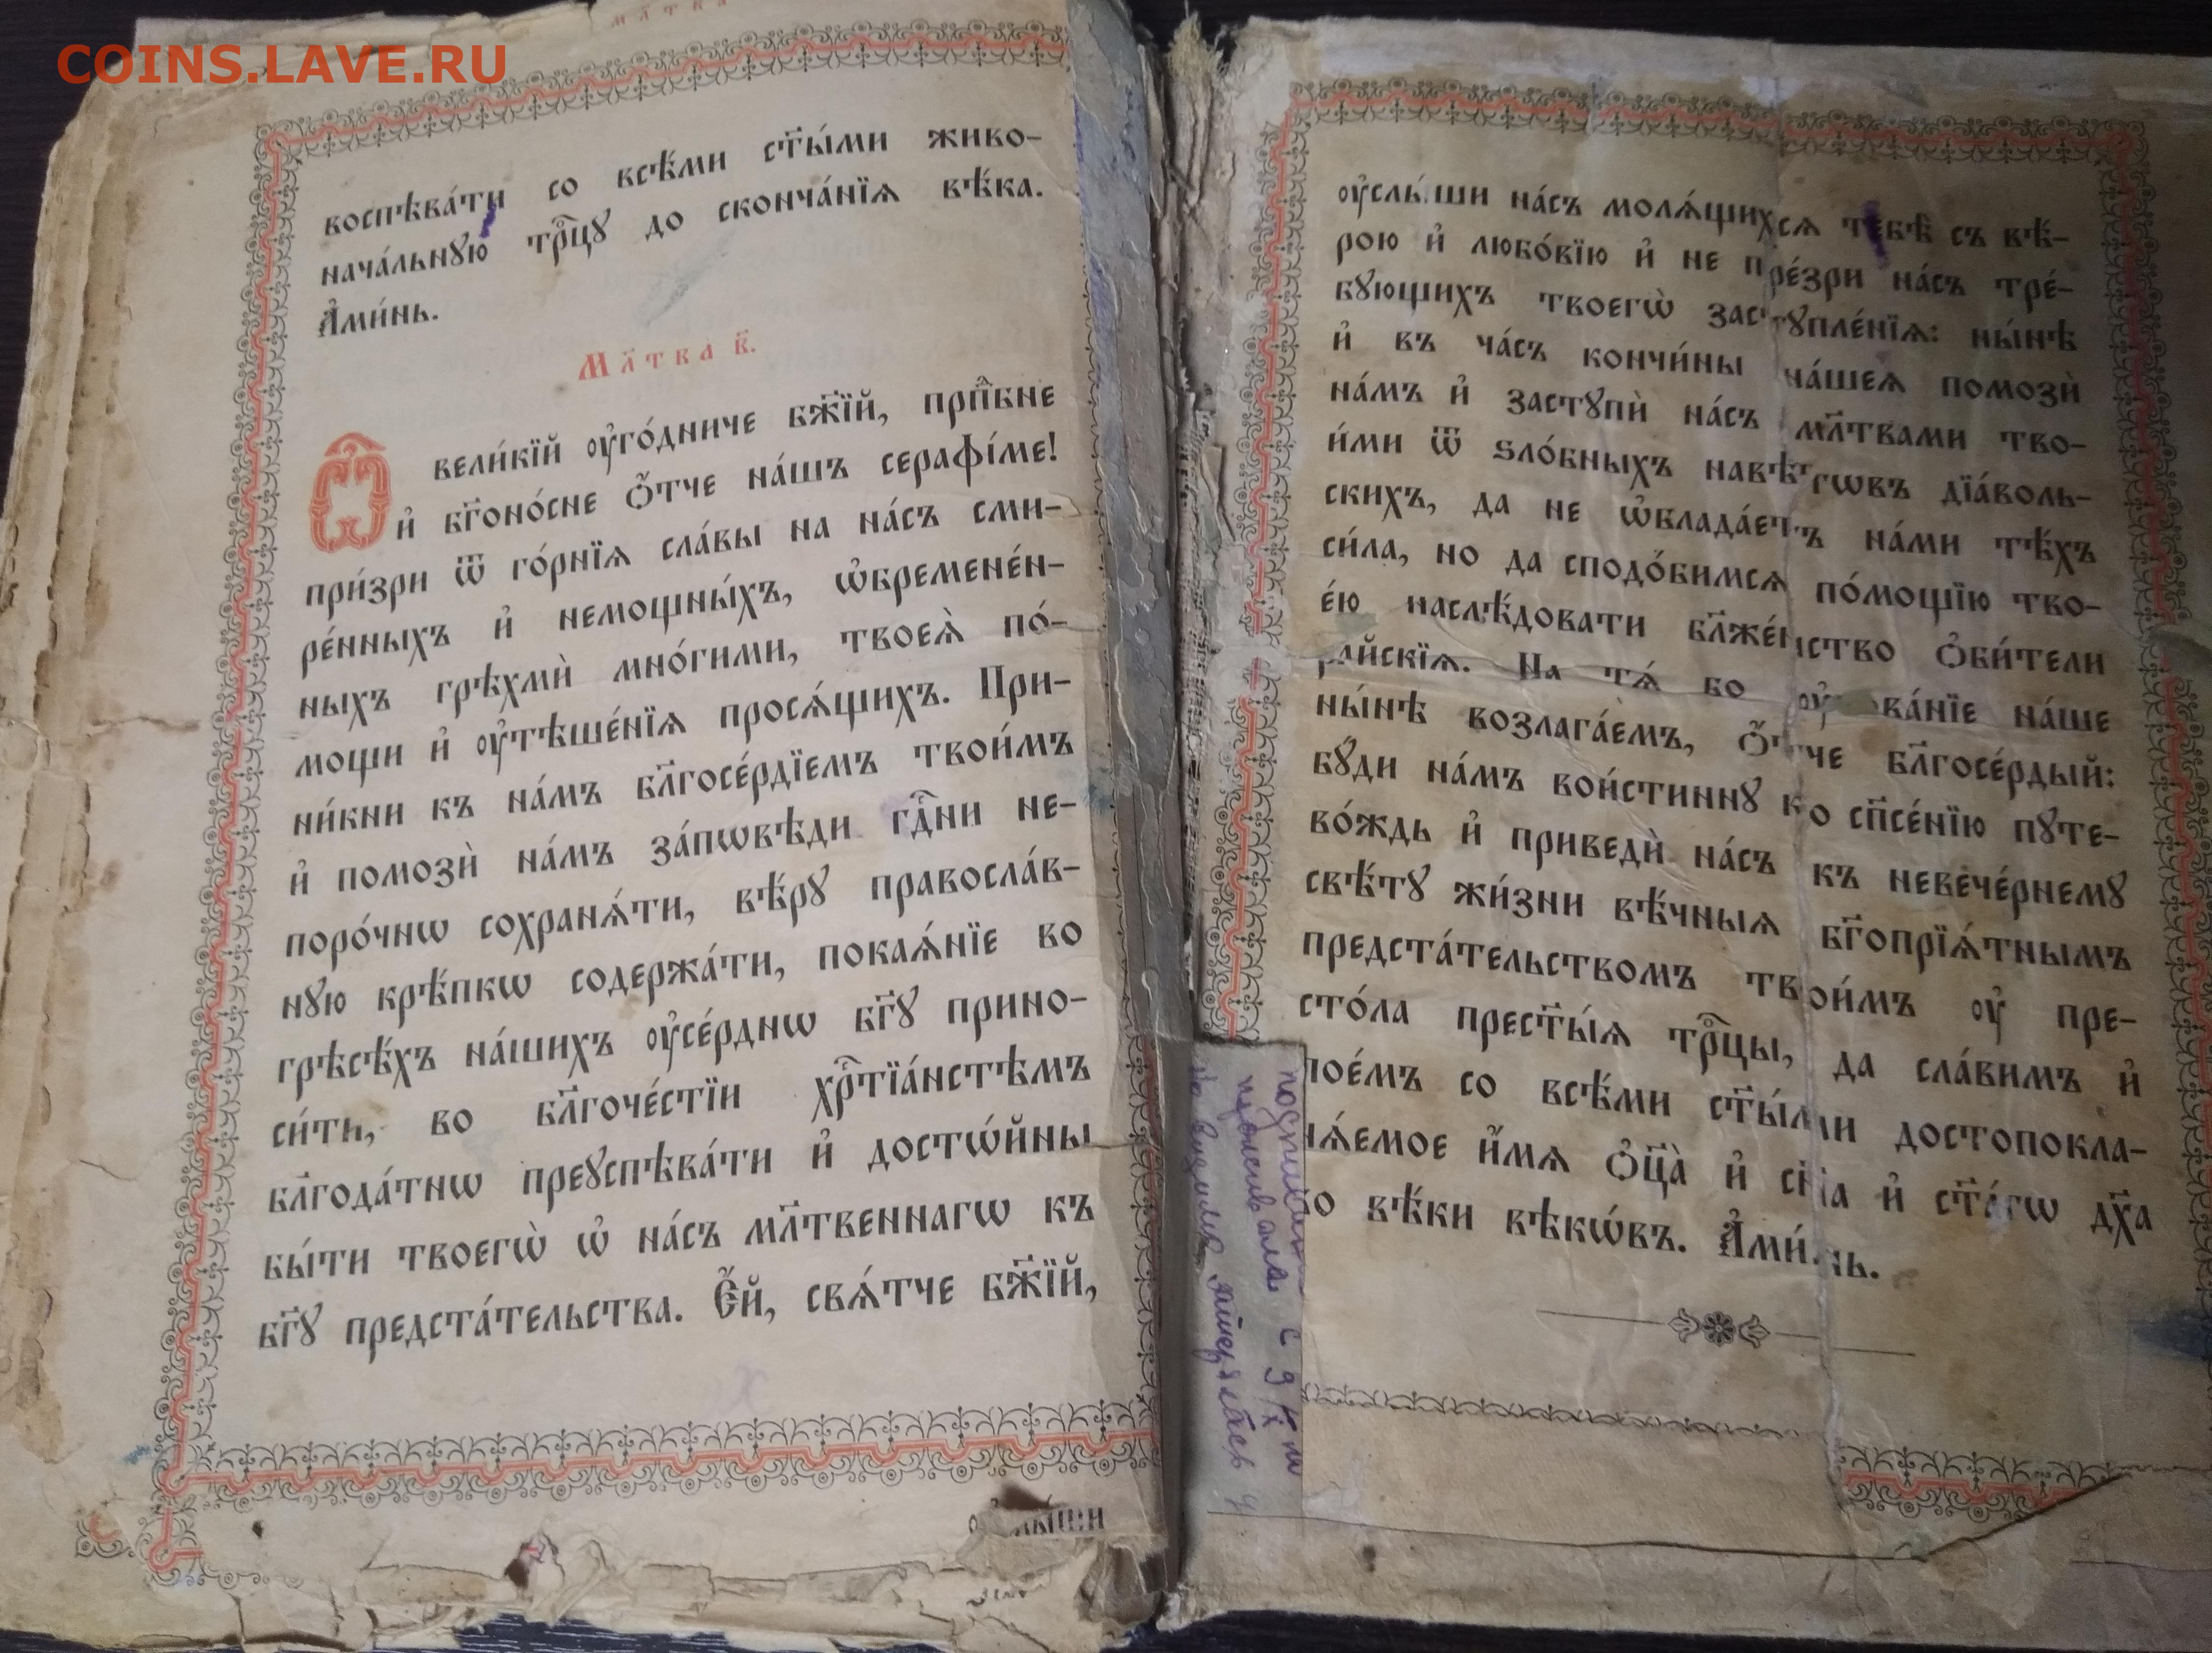 COINS.LAVE.RU
МЛ҃ТВА
воспѣва́ти со всѣ́ми ст҃ы́ми живо-
нача́льную трⷪ҇цꙋ до сконча́нїѧ вѣ́ка.
А҆ми́нь.
Мл҃тва̀ в҃.
Ѽ вели́кїй ᲂу҆го́дниче бж҃їй, прпⷣбне
и҆ бг҃оно́сне ѻ҆́тче на́шъ серафі́ме!
при́зри ѿ го́рнїѧ сла́вы на на́съ сми-
ре́нныхъ и҆ немощны́хъ, ѡ҆бремене́н-
ныхъ грѣхмѝ мно́гими, твоеѧ̀ по́-
мощи и҆ ᲂу҆тѣше́нїѧ просѧ́щихъ. При-
ни́кни къ на́мъ бл҃госе́рдїемъ твои́мъ
и҆ помозѝ на́мъ за́пѡвѣди гдⷭ҇ни не-
поро́чнѡ сохранѧ́ти, вѣ́рꙋ правосла́в-
нꙋю крѣ́пкѡ содержа́ти, покаѧ́нїе во
грѣсѣ́хъ на́шихъ ᲂу҆се́рднѡ бг҃ꙋ прино-
си́ти, во бл҃гоче́стїи хрⷭ҇тїа́нстѣмъ
бл҃года́тнѡ преꙋспѣва́ти и҆ достѡ́йны
бы́ти твоегѡ̀ ѡ҆ на́съ мл҃твеннагѡ къ
бг҃ꙋ предста́тельства. Є҆́й, свѧ́тче бж҃їй,
ᲂу҆слы́ши на́съ молѧ́щихсѧ тебѣ̀ съ вѣ́-
рою и҆ любо́вїю и҆ не пре́зри на́съ тре́-
бꙋющихъ твоегѡ̀ застꙋпле́нїѧ: ны́нѣ
и҆ въ ча́съ кончи́ны на́шеѧ помозѝ
на́мъ и҆ застꙋпѝ на́съ мл҃твами тво-
и́ми ѿ ѕло́бныхъ навѣ́тѡвъ дїа́воль-
скихъ, да не ѡ҆блада́етъ на́ми тѣ́хъ
си́ла, но да сподо́бимсѧ по́мощїю тво-
е́ю наслѣ́довати бл҃же́нство ѻ҆би́тели
ра́йскїѧ. На тѧ́ бо ᲂу҆пова́нїе на́ше
ны́нѣ возлага́емъ, ѻ҆́тче бл҃госе́рдый:
бꙋ́ди на́мъ вои́стиннꙋ ко сп҃се́нїю пꙋте-
во́ждь и҆ приведѝ на́съ къ невече́рнемꙋ
свѣ́тꙋ жи́зни вѣ́чныѧ бг҃опрїѧ́тнымъ
предста́тельствомъ твои́мъ ᲂу҆ пре-
сто́ла прест҃ы́ѧ трⷪ҇цы, да сла́вимъ и҆
пое́мъ со всѣ́ми ст҃ы́ми достопокла-
нѧ́емое и҆́мѧ ѻ҆ц҃а̀ и҆ сн҃а и҆ ст҃а́гѡ дх҃а
во вѣ́ки вѣкѡ́въ. А҆ми́нь.
с 9/X